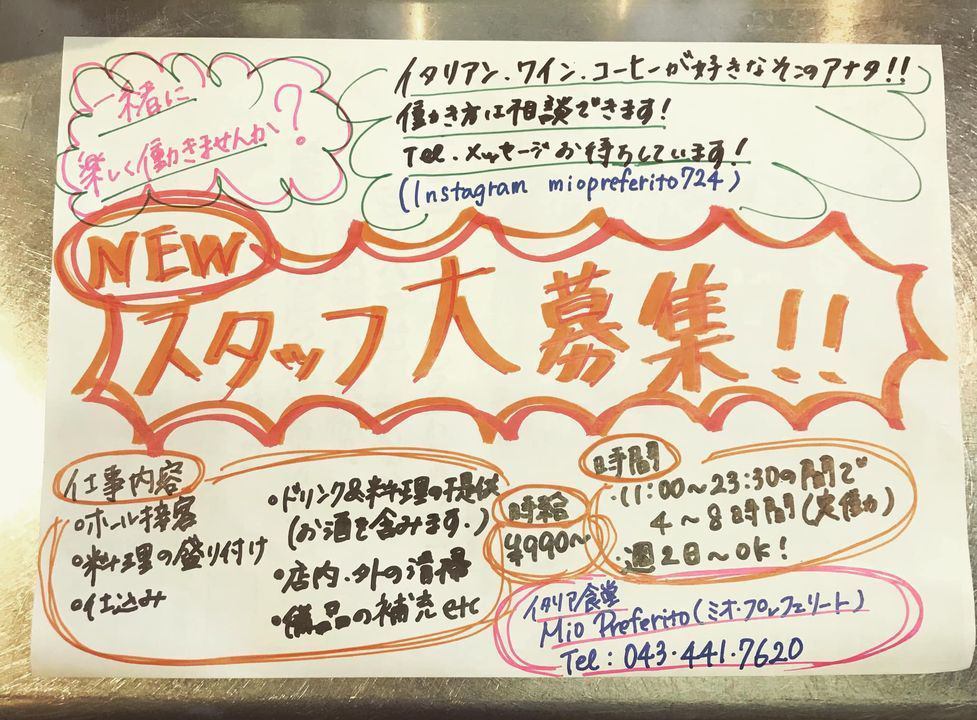 一緒に
楽しく働きませんか?
イタリアン.ワイン.コーヒーが好きなそこのアナタ!!
働き方は相談できます!
Tel.メッセージお待ちしています!
(Instagram miopreferito724)
NEW
スタッフ大募集!!
仕事内容
・ホール接客
・料理の盛り付け
・仕込み
・ドリンク&料理の提供
(お酒を含みます.)
・店内.外の清掃
・備品の補充etc
時給
¥990~
時間
・11:00~23:30の間で
4~8時間(実働)
・週2日~OK!
イタリアン食堂
Mio Preferito(ミオ・プレフェリート)
Tel:043.441.7620